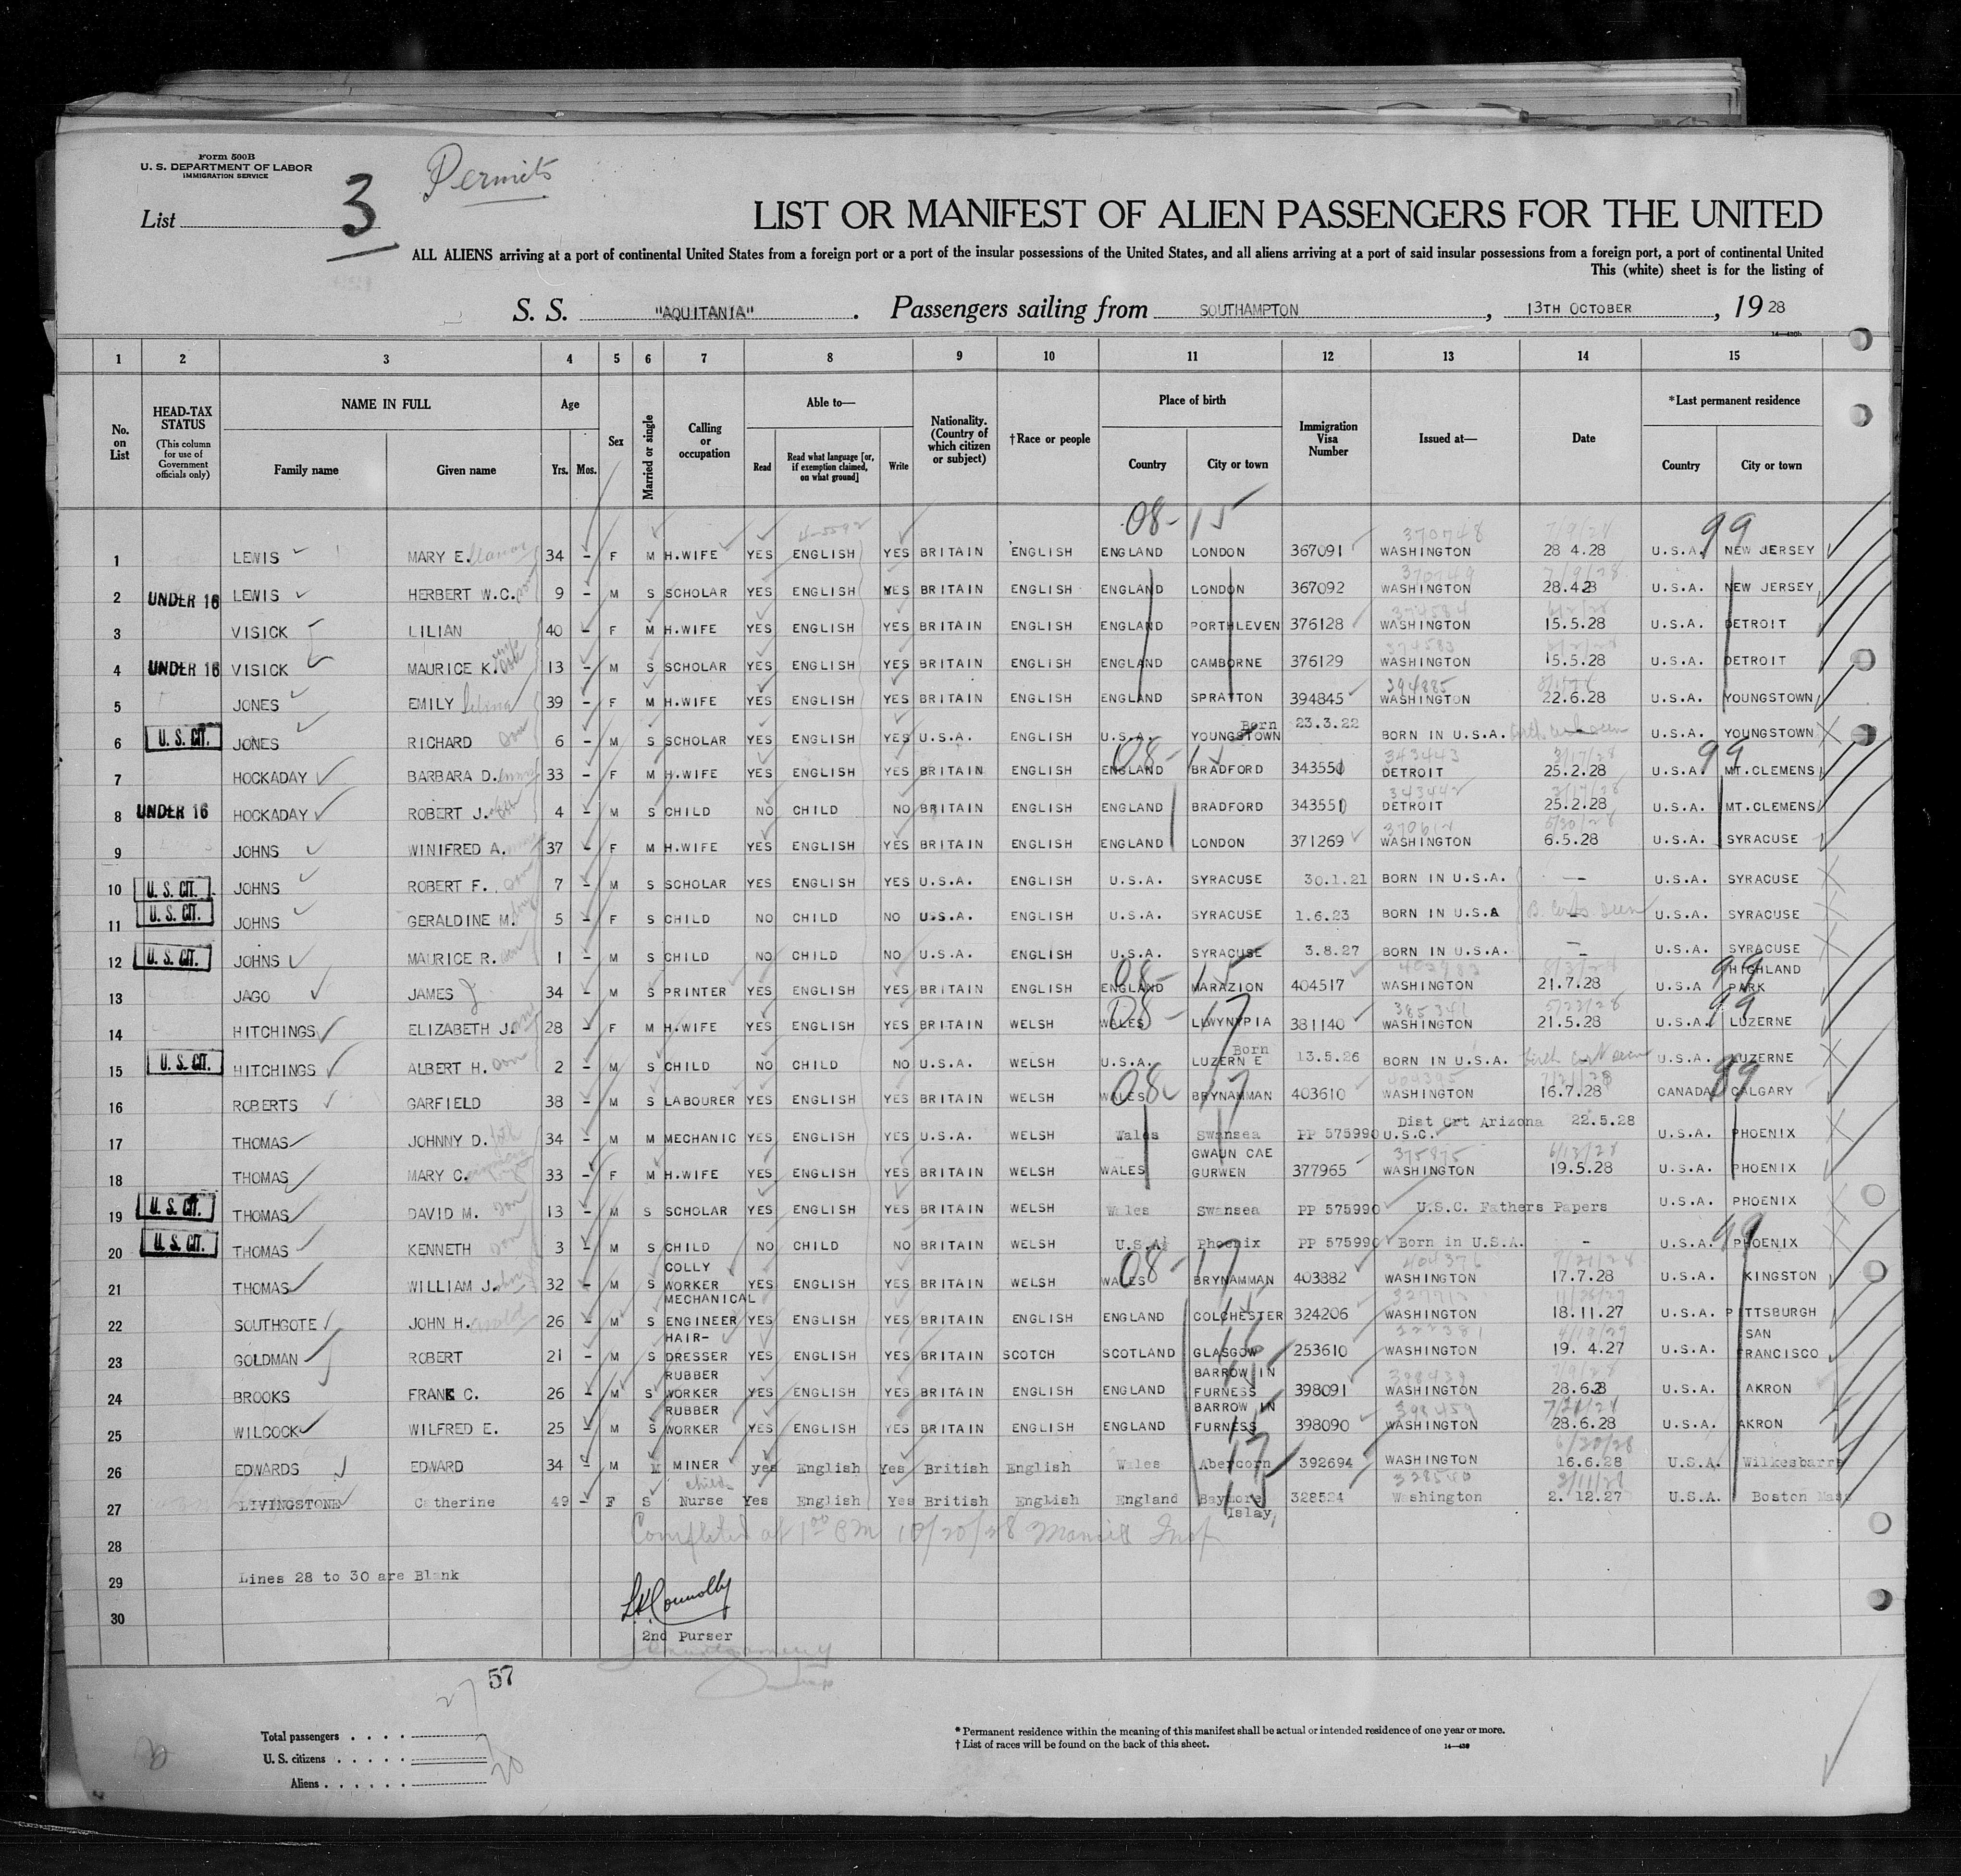 Form 500B
U. S. DEPARTMENT OF LABOR
IMMIGRATION SERVICE
Permits
List 3
LIST OR MANIFEST OF ALIEN PASSENGERS FOR THE UNITED
ALL ALIENS arriving at a port of continental United States from a foreign port or a port of the insular possessions of the United States, and all aliens arriving at a port of said insular possessions from a foreign port, a port of continental United
This (white) sheet is for the listing of
S. S. "AQUITANIA". Passengers sailing from SOUTHAMPTON, 13TH OCTOBER, 1928
1 2 3 4 5 6 7 8 9 10 11 12 13 14 15
No. on List
HEAD-TAX STATUS (This column for use of Government officials only)
NAME IN FULL Family name Given name
Age Yrs. Mos.
Sex
Married or single
Calling or occupation
Able to— Read Read what language [or, if exemption claimed, on what ground] Write
Nationality. (Country of which citizen or subject)
†Race or people
Place of birth Country City or town
Immigration Visa Number
Issued at—
Date
*Last permanent residence Country City or town
08-15 370748 7/9/28 99
1 LEWIS MARY E. 34 - F M H.WIFE YES ENGLISH YES BRITAIN ENGLISH ENGLAND LONDON 367091 WASHINGTON 28 4.28 U.S.A. NEW JERSEY
370749 7/9/28
2 UNDER 16 LEWIS HERBERT W.C. 9 - M S SCHOLAR YES ENGLISH YES BRITAIN ENGLISH ENGLAND LONDON 367092 WASHINGTON 28.4.28 U.S.A. NEW JERSEY
374584
3 VISICK LILIAN 40 - F M H.WIFE YES ENGLISH YES BRITAIN ENGLISH ENGLAND PORTHLEVEN 376128 WASHINGTON 15.5.28 U.S.A. DETROIT
374583
4 UNDER 16 VISICK MAURICE K. son 13 - M S SCHOLAR YES ENGLISH YES BRITAIN ENGLISH ENGLAND CAMBORNE 376129 WASHINGTON 15.5.28 U.S.A. DETROIT
394885
5 JONES EMILY Selina 39 - F M H.WIFE YES ENGLISH YES BRITAIN ENGLISH ENGLAND SPRATTON 394845 WASHINGTON 22.6.28 U.S.A. YOUNGSTOWN
6 U. S. CIT. JONES RICHARD son 6 - M S SCHOLAR YES ENGLISH YES U.S.A. ENGLISH U.S.A. Born YOUNGSTOWN 23.3.22 BORN IN U.S.A. birth cert seen U.S.A. YOUNGSTOWN
08- 343443 3/17/28 99
7 HOCKADAY BARBARA D. 33 - F M H.WIFE YES ENGLISH YES BRITAIN ENGLISH ENGLAND BRADFORD 343550 DETROIT 25.2.28 U.S.A. MT.CLEMENS
343442 3/17/28
8 UNDER 16 HOCKADAY ROBERT J. 4 - M S CHILD NO CHILD NO BRITAIN ENGLISH ENGLAND BRADFORD 343551 DETROIT 25.2.28 U.S.A. MT.CLEMENS
370612 5/30/28
9 JOHNS WINIFRED A. 37 - F M H.WIFE YES ENGLISH YES BRITAIN ENGLISH ENGLAND LONDON 371269 WASHINGTON 6.5.28 U.S.A. SYRACUSE
10 U. S. CIT. JOHNS ROBERT F. son 7 - M S SCHOLAR YES ENGLISH YES U.S.A. ENGLISH U.S.A. SYRACUSE 30.1.21 BORN IN U.S.A. — U.S.A. SYRACUSE
11 U. S. CIT. JOHNS GERALDINE M. 5 - F S CHILD NO CHILD NO U.S.A. ENGLISH U.S.A. SYRACUSE 1.6.23 BORN IN U.S.A B. Certs seen U.S.A. SYRACUSE
12 U. S. CIT. JOHNS MAURICE R. son 1 - M S CHILD NO CHILD NO U.S.A. ENGLISH U.S.A. SYRACUSE 3.8.27 BORN IN U.S.A. - U.S.A. SYRACUSE
08-15 99
13 JAGO JAMES J 34 - M S PRINTER YES ENGLISH YES BRITAIN ENGLISH ENGLAND MARAZION 404517 WASHINGTON 21.7.28 U.S.A HIGHLAND PARK
08-17 385341 5/23/28 99
14 HITCHINGS ELIZABETH J. 28 - F M H.WIFE YES ENGLISH YES BRITAIN WELSH WALES LLWYNYPIA 381140 WASHINGTON 21.5.28 U.S.A. LUZERNE
15 U. S. CIT. HITCHINGS ALBERT H. son 2 - M S CHILD NO CHILD NO U.S.A. WELSH U.S.A. Born LUZERNE 13.5.26 BORN IN U.S.A. birth cert seen U.S.A. LUZERNE
08-17 404395 7/21/28 99
16 ROBERTS GARFIELD 38 - M S LABOURER YES ENGLISH YES BRITAIN WELSH WALES BRYNAMMAN 403610 WASHINGTON 16.7.28 CANADA CALGARY
17 THOMAS JOHNNY D. 34 - M M MECHANIC YES ENGLISH YES U.S.A. WELSH Wales Swansea PP 575990 U.S.C. Dist Crt Arizona 22.5.28 U.S.A. PHOENIX
375875 6/12/28
18 THOMAS MARY C. 33 - F M H.WIFE YES ENGLISH YES BRITAIN WELSH WALES GWAUN CAE GURWEN 377965 WASHINGTON 19.5.28 U.S.A. PHOENIX
19 U. S. CIT. THOMAS DAVID M. son 13 - M S SCHOLAR YES ENGLISH YES BRITAIN WELSH Wales Swansea PP 575990 U.S.C. Fathers Papers U.S.A. PHOENIX
20 U. S. CIT. THOMAS KENNETH son 3 - M S CHILD NO CHILD NO BRITAIN WELSH U.S.A. Phoenix PP 575990 Born in U.S.A. - U.S.A. PHOENIX
08-17 404376 7/21/28 99
21 THOMAS WILLIAM J. 32 - M S COLLY WORKER YES ENGLISH YES BRITAIN WELSH WALES BRYNAMMAN 403882 WASHINGTON 17.7.28 U.S.A. KINGSTON
22 SOUTHGOTE JOHN H. 26 - M S MECHANICAL ENGINEER YES ENGLISH YES BRITAIN ENGLISH ENGLAND COLCHESTER 324206 WASHINGTON 18.11.27 U.S.A. PITTSBURGH
23 GOLDMAN ROBERT 21 - M S HAIR-DRESSER YES ENGLISH YES BRITAIN SCOTCH SCOTLAND GLASGOW 253610 WASHINGTON 19. 4.27 U.S.A. SAN FRANCISCO
24 BROOKS FRANK C. 26 - M S RUBBER WORKER YES ENGLISH YES BRITAIN ENGLISH ENGLAND BARROW IN FURNESS 398091 WASHINGTON 28.6.28 U.S.A. AKRON
25 WILCOCK WILFRED E. 25 - M S RUBBER WORKER YES ENGLISH YES BRITAIN ENGLISH ENGLAND BARROW IN FURNESS 398090 WASHINGTON 28.6.28 U.S.A. AKRON
17 6/20/28
26 EDWARDS EDWARD 34 - M M MINER yes English Yes British English Wales Abercorn 392694 WASHINGTON 16.6.28 U.S.A. Wilkesbarre
15 328540 2/11/28
27 LIVINGSTONE Catherine 49 - F S childs Nurse Yes English Yes British English England Islay, 328524 Washington 2. 12.27 U.S.A. Boston Mass
28 Completed at 1 00 PM 10/20/28 Insp
29 Lines 28 to 30 are Blank
30
2nd Purser
57
27
Total passengers
U. S. citizens 7
Aliens 20
* Permanent residence within the meaning of this manifest shall be actual or intended residence of one year or more.
† List of races will be found on the back of this sheet.